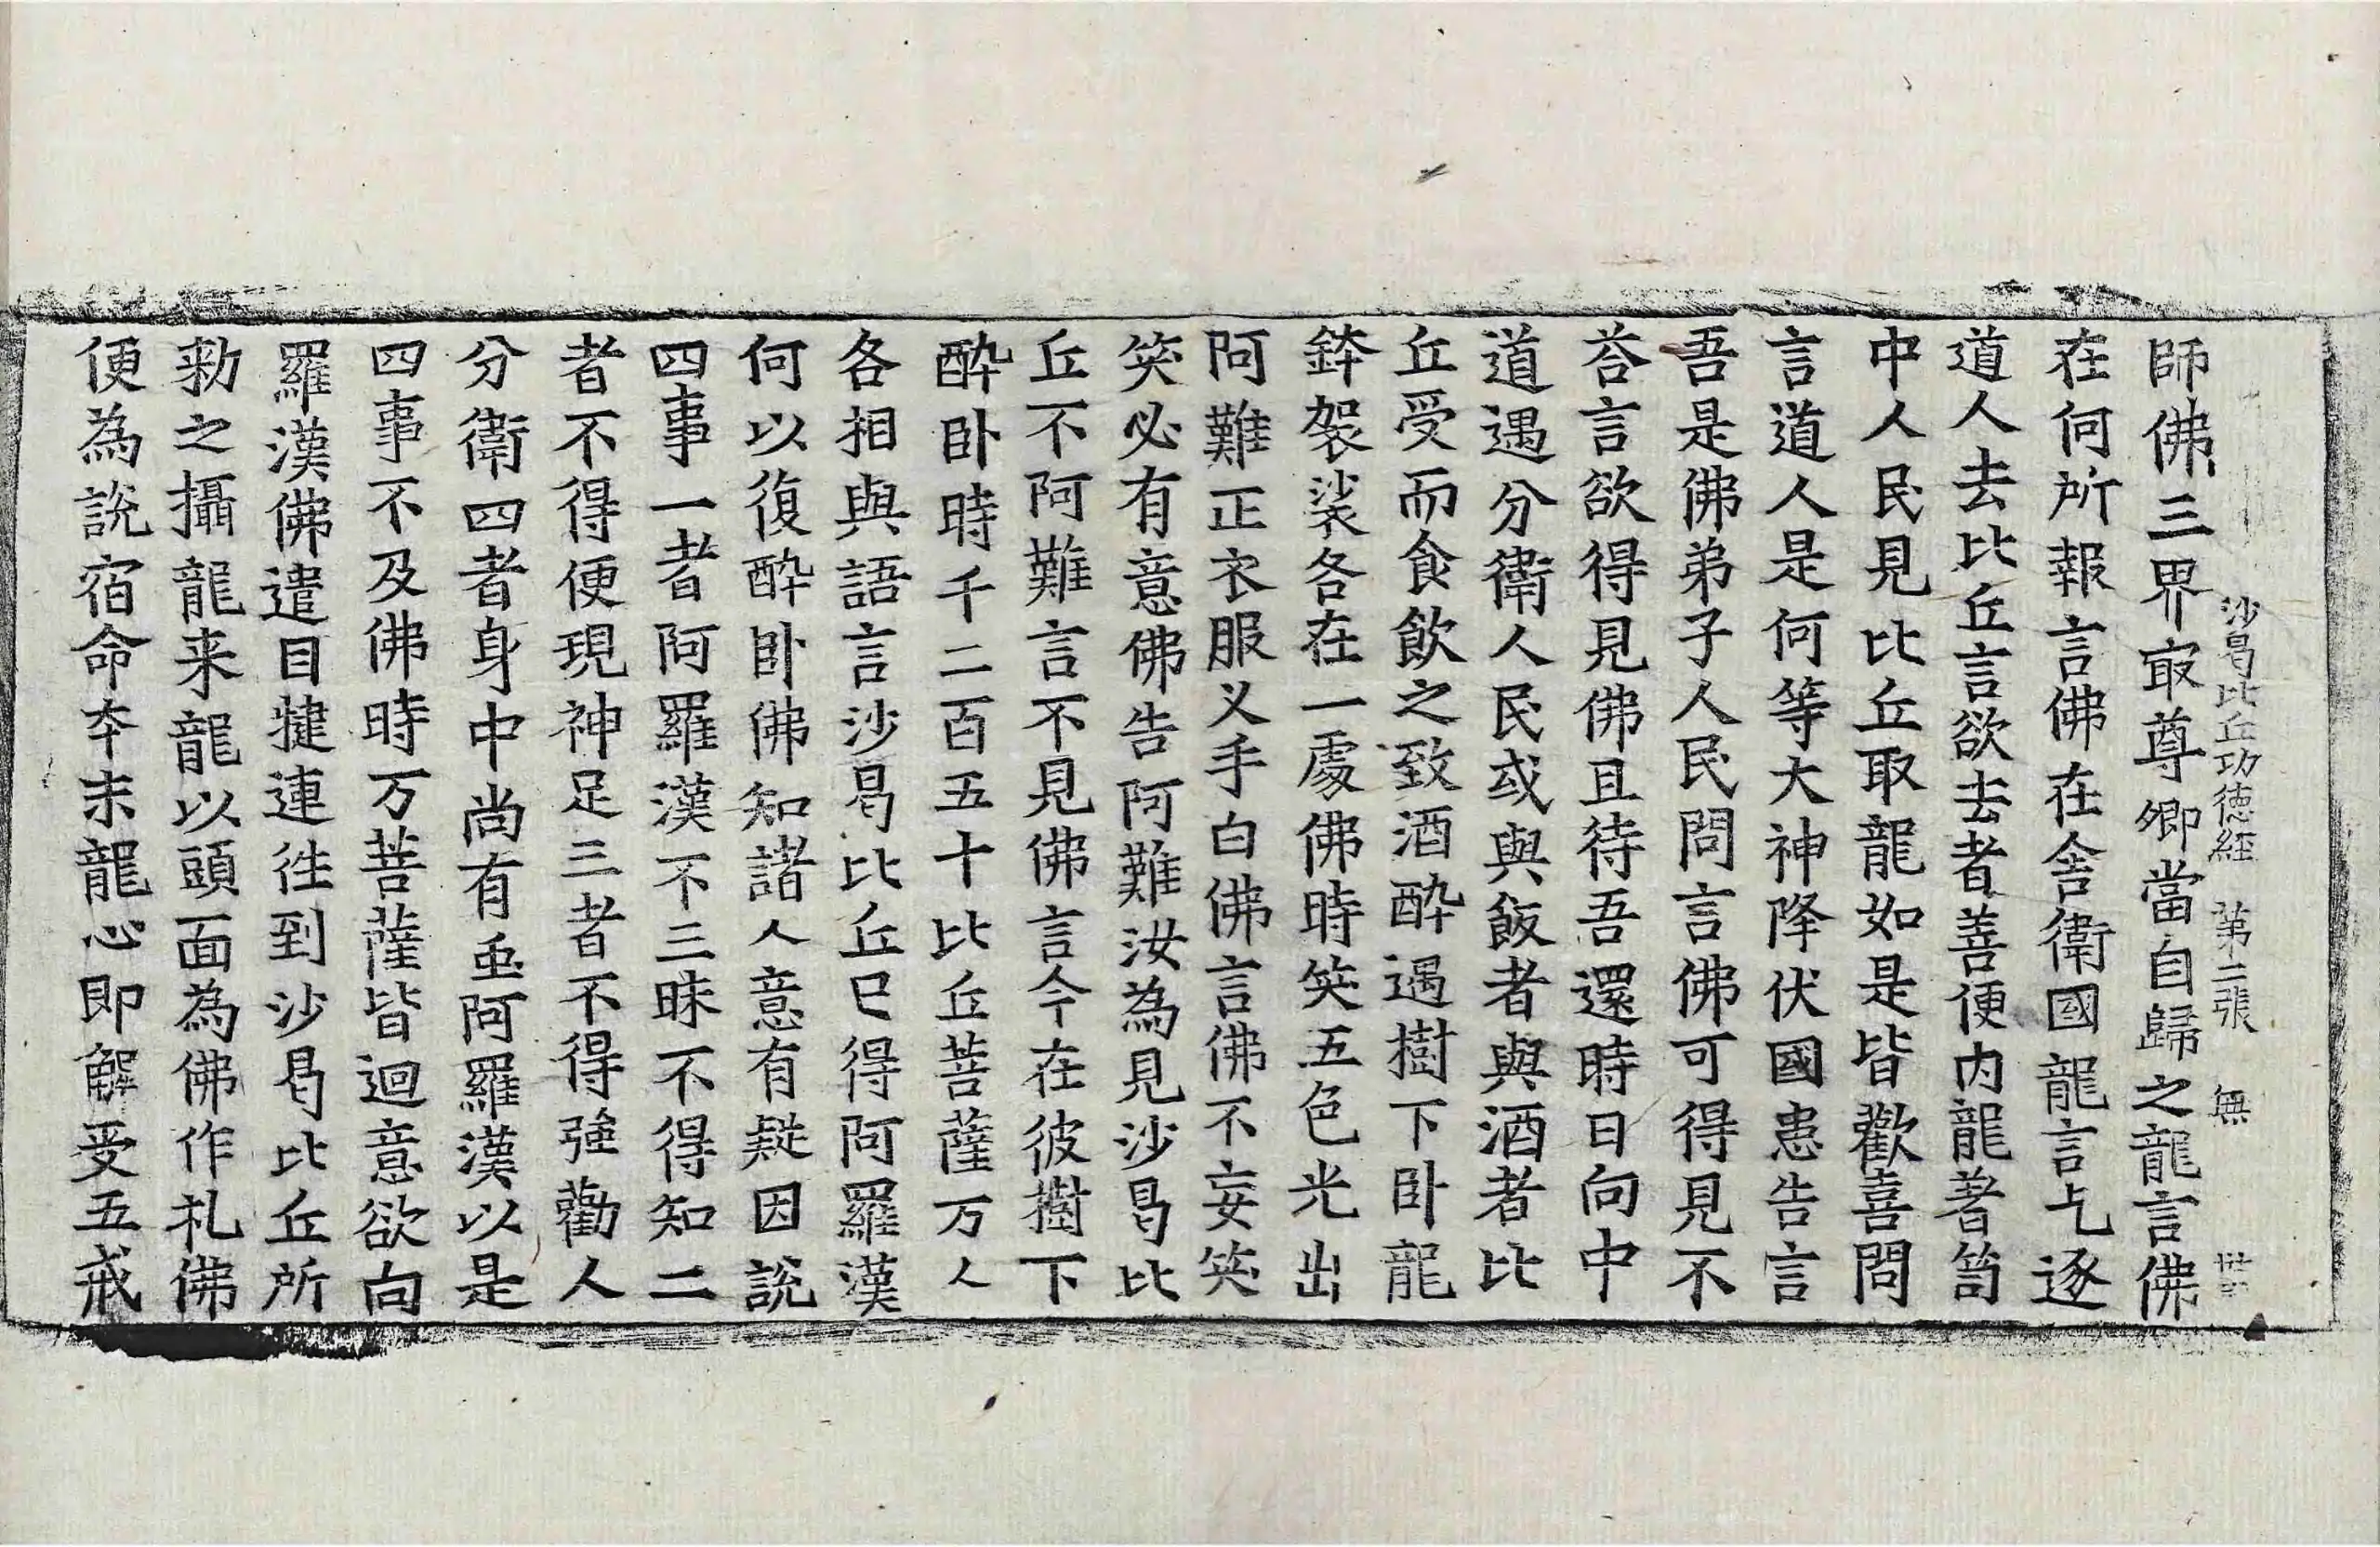 沙曷比丘功德經 第二張 無
師佛三界㝡尊卿當自歸之龍言佛
在何所報言佛在舍衛國龍言乞逐
道人去比丘言欲去者善便内龍著笥
中人民見比丘取龍如是皆歡喜問
言道人是何等大神降伏國患告言
吾是佛弟子人民問言佛可得見不
荅言欲得見佛且待吾還時日向中
道遇分衛人民或與飯者與酒者比
丘受而食飲之致酒醉遇樹下卧龍
鉢袈裟各在一處佛時笑五色光出
阿難正衣服义手白佛言佛不妄笑
笑必有意佛告阿難汝為見沙曷比
丘不阿難言不見佛言今在彼樹下
醉卧時千二百五十比丘菩薩万人
各相與語言沙曷比丘已得阿羅漢
何以復醉卧佛知諸人意有疑因說
四事一者阿羅漢不三昧不得知二
者不得便現神足三者不得强勸人
分衛四者身中尚有䖝阿羅漢以是
四事不及佛時万菩薩皆迴意欲向
羅漢佛遣目揵連往到沙曷比丘所
勑之攝龍来龍以頭面為佛作礼佛
便為說宿命夲末龍心即解受五戒